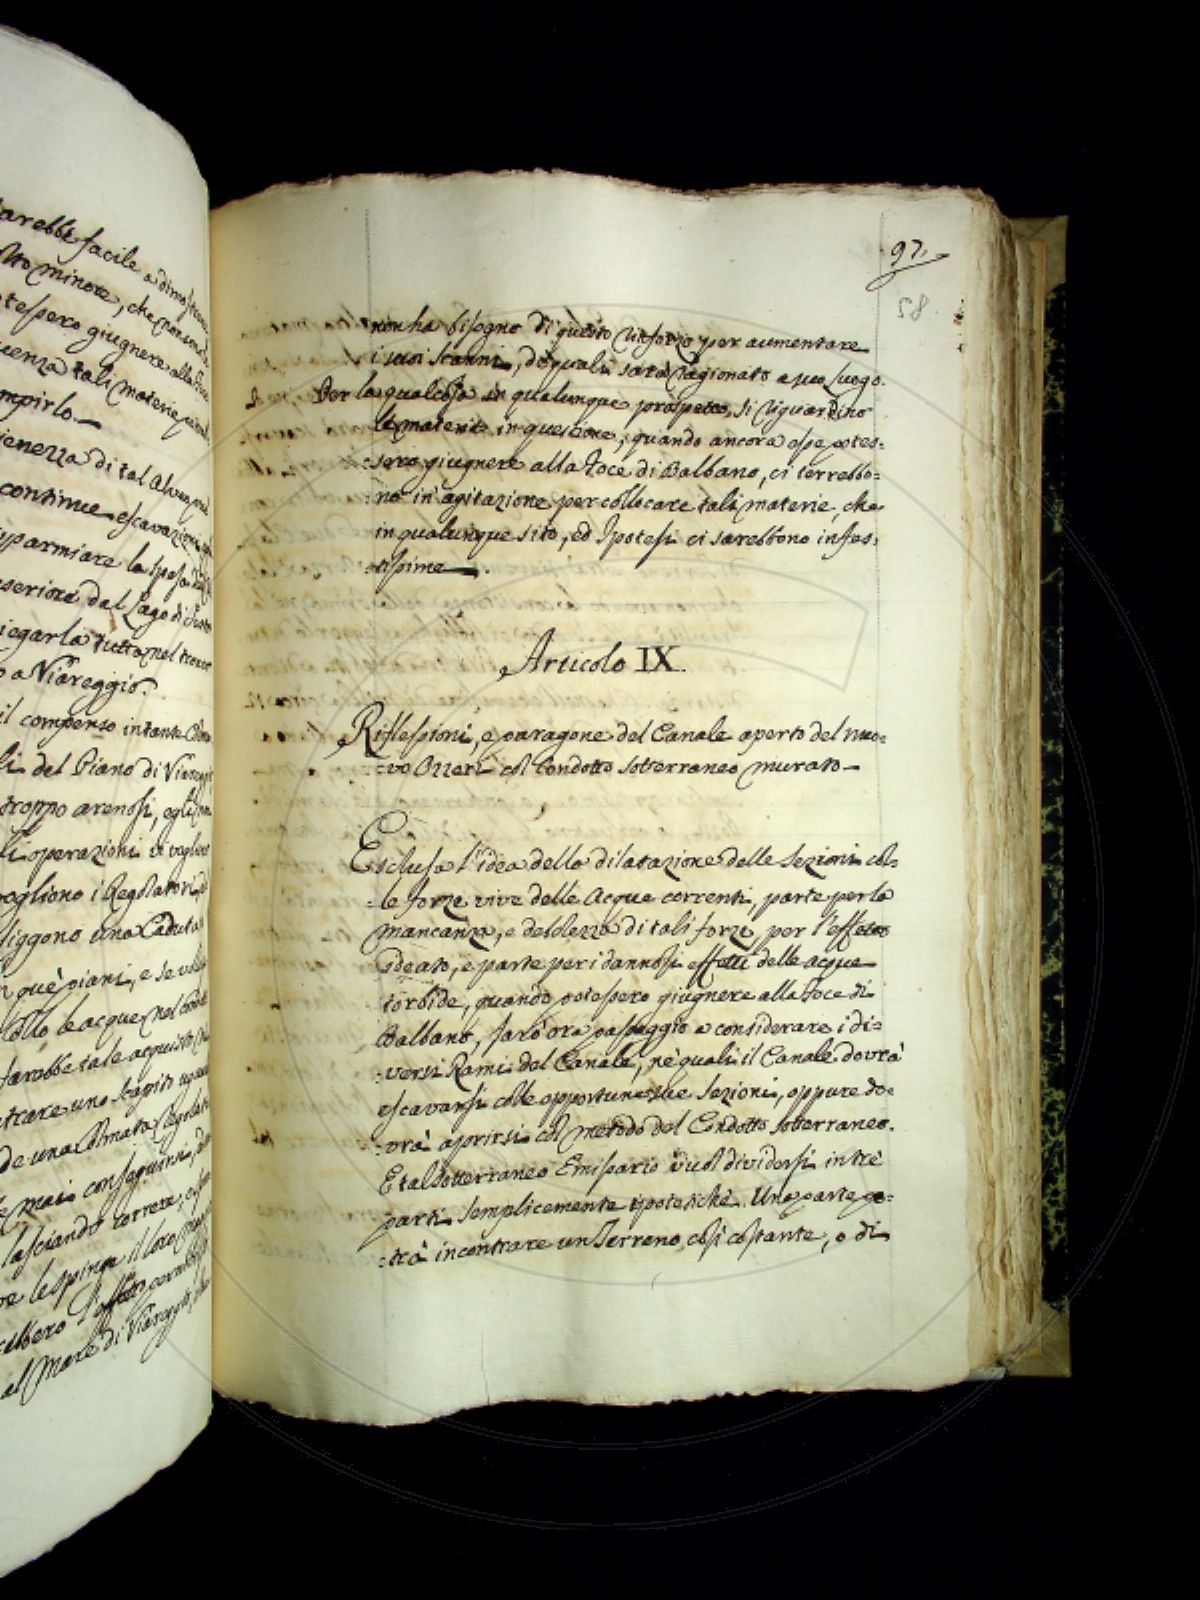 arebbe facile a dimostrare
tto minore, che non sono le
otessero giugnere alla Foce
uenza tali materie
mpirlo.
ienezza di tal Alveo
continue escavazioni
sparmiare la spesa
seriore dal Lago di Sesto
iegarla tutta nel
o a Viareggio.
il compenso in tante
li del Piano di Viareggio
troppo arenosi, egli
li operazioni vi vogliono
vogliono i Regolatori
liggono una Caduta
n què piani, e se
ollo le acque nel
sarebbe tale acquisto
trare uno scapito
de una Armata Regolata
e mai conseguirsi,
lasciando correre,
ve le spinge il loro
rebbero l'effetto
al Mare di Viareggio,
97.
58.
non ha bisogno di questo rinforzo per aumentare
i suoi scanni, de quali sarà ragionato a suo luogo.
Per la qualcosa in qualunque prospetto, si riguardino
le materie in questione, quando ancora esse potes:
:sero giugnere alla Foce di Balbano, ci terrebbo:
:no in agitazione per collocare tali materie, che
in qualunque sito, ed Ipotesi ci sarebbono infes:
:tissime.
Articolo IX.
Riflessioni, e paragone del Canale aperto del nuo:
:vo Ozzeri col Condotto sotterraneo murato
Esclusa l'idea della dilatazione delle Sezioni col:
:le forze vive delle Acque correnti, parte per la
mancanza, e debolezza di tali forze, per l'effetto
ideato, e parte per i dannosi effetti delle acque
torbide, quando potessero giugnere alla Foce di
Balbano, farò ora passaggio a considerare i di:
:versi Rami del Canale, nè quali il Canale dovrà
escavarsi colle opportune sue Sezioni, oppure do:
:vrà aprirsi col metodo del Condotto sotterraneo.
E tal sotterraneo Emissario vuol dividersi in trè
parti semplicemente ipotetiche. Una parte po:
:trà incontrare un Terreno così costante, o di